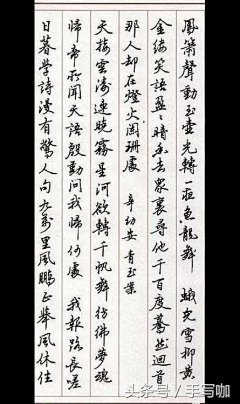 鳳簫聲動玉壺光轉一夜魚龍舞 蛾兒雪柳黃
金縷笑語盈盈暗香去眾裏尋他千百度驀然迴首
那人卻在燈火闌珊處 辛幼安 青玉案
天接雲濤連曉霧星河欲轉千帆舞彷彿夢魂
歸帝所聞天語殷勤問我歸何處 我報路長嗟
日暮學詩漫有驚人句九萬里風鵬正舉風休住
头条号/手写咖